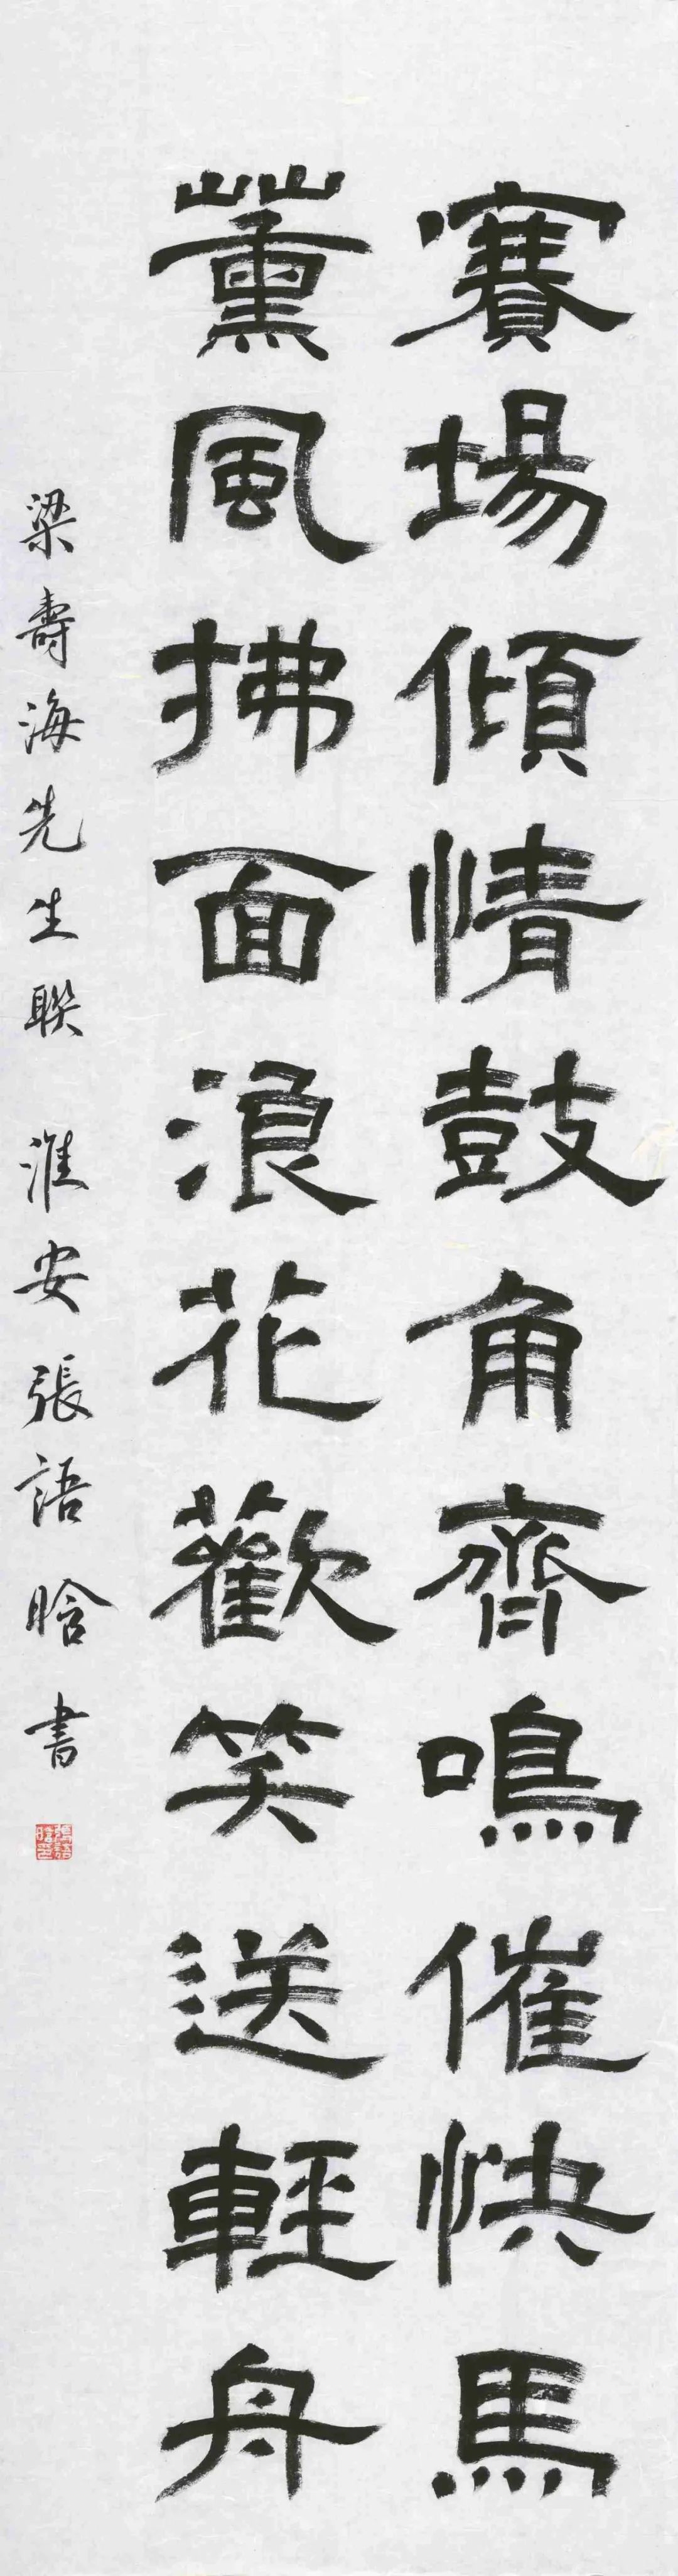 賽場傾情鼓角齊鳴催快馬
薰風拂面浪花歡笑送輕舟
梁壽海先生聯 淮安張語晗書